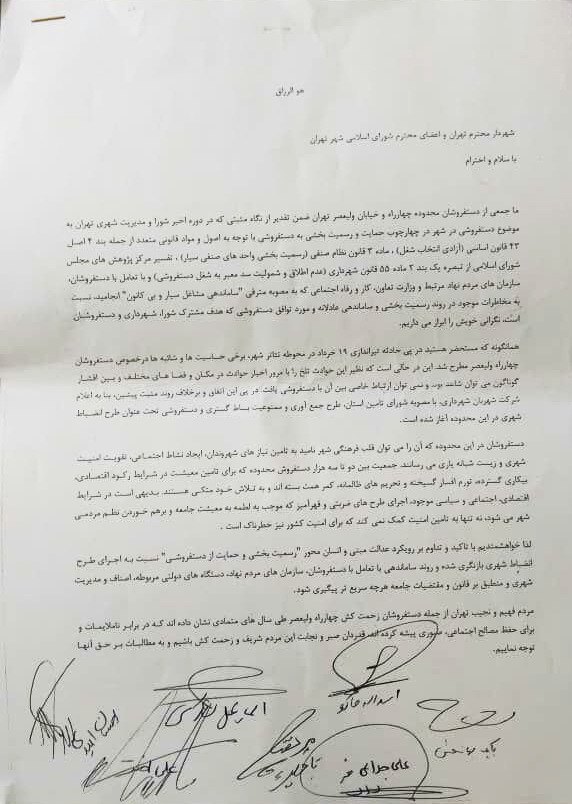 هو الرزاق
شهردار محترم تهران و اعضای محترم شورای اسلامی شهر تهران
با سلام و احترام
ما جمعی از دستفروشان محدوده چهارراه و خیابان ولیعصر تهران ضمن تقدیر از نگاه مثبتی که در دوره اخیر شورا و مدیریت شهری تهران به
موضوع دستفروشی در شهر در چهارچوب حمایت و رسمیت بخشی به دستفروشی با توجه به اصول و مواد قانونی متعدد از جمله بند ۴ اصل
۴۳ قانون اساسی (آزادی انتخاب شغل) ، ماده ۳ قانون نظام صنفی (رسمیت بخشی واحد های صنفی سیار) ، تفسیر مرکز پژوهش های مجلس
شورای اسلامی از تبصره یک بند ۲ ماده ۵۵ قانون شهرداری (عدم اطلاق و شمولیت سد معبر به شغل دستفروشی) و با تعامل با دستفروشان،
سازمان های مردم نهاد مرتبط و وزارت تعاون، کار و رفاه اجتماعی که به مصوبه مترقی "ساماندهی مشاغل سیار و بی کانون" انجامید، نسبت
به مخاطرات موجود در روند رسمیت بخشی و ساماندهی عادلانه و مورد توافق دستفروشی که هدف مشترک شورا، شهرداری و دستفروشان
است، نگرانی خویش را ابراز می داریم.
همانگونه که مستحضر هستید در پی حادثه تیراندازی ۱۹ خرداد در محوطه تئاتر شهر، برخی حساسیت ها و شائبه ها درخصوص دستفروشان
چهارراه ولیعصر مطرح شد. این در حالی است که نظیر این حوادث تلخ را با مرور اخبار حوادث در مکان و فضا های مختلف و بین اقشار
گوناگون می توان شاهد بود و نمی توان ارتباط خاصی بین آن با دستفروشی یافت. در پی این اتفاق و برخلاف روند مثبت پیشین، بنا به اعلام
شرکت شهربان شهرداری، با مصوبه شورای تامین استان، طرح جمع آوری و ممنوعیت بساط گستری و دستفروشی تحت عنوان طرح انضباط
شهری در این محدوده آغاز شده است.
دستفروشان در این محدوده که آن را می توان قلب فرهنگی شهر نامید به تامین نیاز های شهروندان، ایجاد نشاط اجتماعی، تقویت امنیت
شهری و زیست شبانه یاری می رسانند. جمعیت بین دو تا سه هزار دستفروش محدوده که برای تامین معیشت در شرایط رکود اقتصادی،
بیکاری گسترده، تورم افسار گسیخته و تحریم های ظالمانه، کمر همت بسته اند و به تلاش خود متکی هستند. بدیهی است در شرایط
اقتصادی، اجتماعی و سیاسی موجود، اجرای طرح های ضربتی و قهرآمیز که موجب به لطمه به معیشت جامعه و برهم خوردن نظم مردمی
شهر می شود، نه تنها به تامین امنیت کمک نمی کند که برای امنیت کشور نیز خطرناک است .
لذا خواهشمندیم با تاکید و تداوم بر رویکرد عدالت مبنی و انسان محور "رسمیت بخشی و حمایت از دستفروشی" نسبت به اجرای طرح
انضباط شهری بازنگری شده و روند ساماندهی با تعامل با دستفروشان، سازمان های مردم نهاد، دستگاه های دولتی مربوطه، اصناف و مدیریت
شهری و منطبق بر قانون و مقتضیات جامعه هرچه سریع تر پیگیری شود.
مردم فهیم و نجیب تهران از جمله دستفروشان زحمت کش چهارراه ولیعصر طی سال های متمادی نشان داده اند که در برابر ناملایمات و
برای حفظ مصالح اجتماعی، صبوری پیشه کرده اند. قدردان صبر و نجابت این مردم شریف و زحمت کش باشیم و به مطالبات بر حق آنها
توجه نماییم.